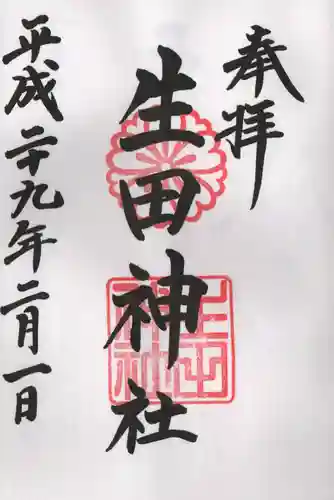 奉拝
生田神社
平成二十九年二月一日